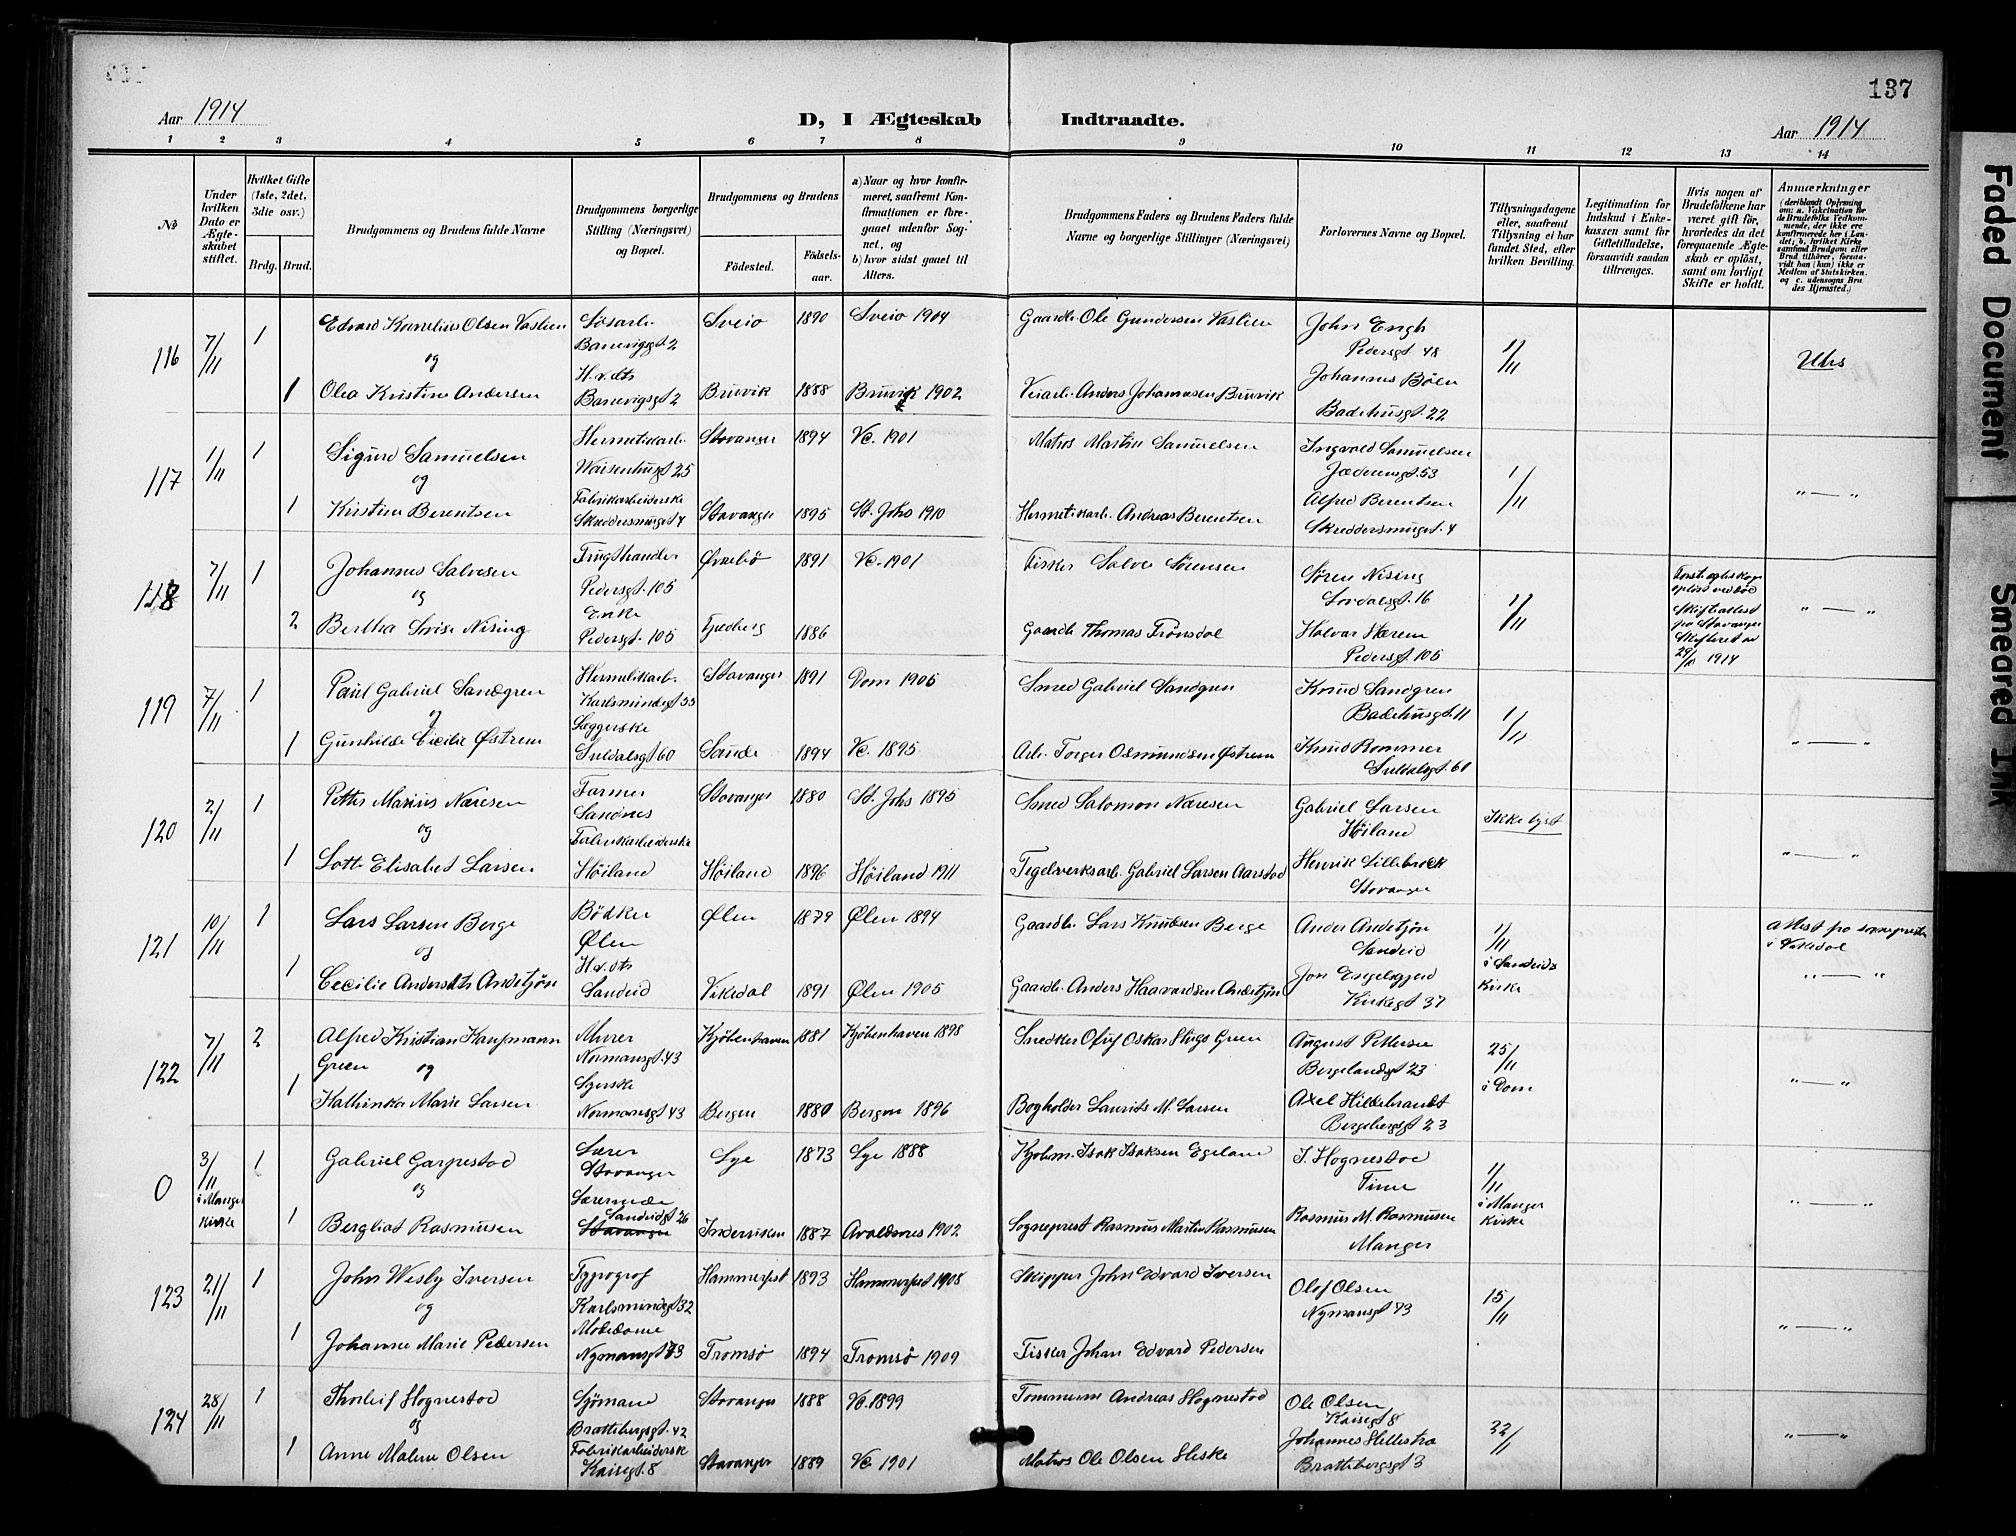 137
Aar 1914
D, I Ægteskab Indtraadte.
Aar 1914
1 2 3 4 5 6 7 8 9 10 11 12 13 14
№
Under hvilken Dato er Ægteskabet stiftet.
Hvilket Gifte (1ste, 2det, 3die osv.)
Brdg. Brud.
Brudgommens og Brudens fulde Navne
Brudgommens borgerlige Stilling (Næringsvei) og Bopæl.
Brudgommens og Brudens
Fødested.
Fødselsaar.
a) Naar og hvor konfirmeret, saafremt Konfirmationen er foregaaet udenfor Sognet, og
b) hvor sidst gaaet til Alters.
Brudgommens Faders og Brudens Faders fulde Navne og borgerlige Stillinger (Næringsvei)
Forlovernes Navne og Bopæl.
Tillysningsdagene eller, saafremt Tillysning ei har fundet Sted, efter hvilken Bevilling.
Legitimation for Indskud i Enkekassen samt for Giftetilladelse, forsaavidt saadan tiltrænges.
Hvis nogen af Brudefolkene har været gift før, hvorledes da det foregaaende Ægteskab er opløst, samt om lovligt Skifte er holdt.
Anmærkninger
116 7/11 1 Edvard Kornelius Olsen Vastlien Løsarb. Banevigsgt 2 Sveio 1890 Sveio 1904 Gaardb. Ole Gundersen Vastlien John Engh Pedersgt. 48 1/11
og
1 Olea Kristine Andersen H. v. dts Banevigsgt 2 Bruvik 1888 Bruvik 1902 Veiarb. Anders Johannesen Bruvik Johannes Böen Badehusgt. 22
117 1/11 1 Sigurd Samuelsen Hermetikarb. Waisenhusgt 25 Stavanger 1894 Vc. 1901 Matros Martin Samuelsen Ingvald Samuelsen Jæderensgt. 53 1/11 " — "
og
1 Kristine Berentsen Fabrikarbeiderske Skreddersmuget 4 Stavanger 1895 St. Johs 1910 Hermetikarb. Andreas Berentsen Alfred Berentsen Skreddersmuget. 4
118 7/11 1 Johannes Salvesen Frugthandler Pedersgt. 105 Ørnebø 1891 Vc. 1901 Fisker Salve Sørensen Søren Nising Lovdalsgt. 16 1/11 " — "
og
2 Bertha Lovise Nising Enke Pedersgt. 105 Fjedberg 1886 Gaardb. Thomas Trønsdal Halvar Hærem Pedersgt. 105
29/10 1914
119 7/11 1 Paul Gabriel Sandgren Hermetikarb. Karlsmindegt 35 Stavanger 1891 Dom 1905 Smed Gabriel Sandgren Knud Sandgren Badehusgt. 11 1/11 " — "
og
1 Gunhilde Cecilie Østrem Læggerske Suldalsgt 60 Sande 1894 Vc. 1895 Arb. Torger Osmundsen Østrem Knud Rommer Suldalsgt. 60
120 2/11 1 Petter Marius Næresen Farmer Sandnes Stavanger 1880 St. Johs 1895 Smed Salomon Næresen Gabriel Larsen Höiland Ikke lyst " — "
og
1 Lotte Elisabet Larsen Fabrikarbeiderske Höiland Höiland 1896 Höiland 1911 Teglverksarb. Gabriel Larsen Aarstad Henrik Lillebroek Stavanger
121 10/11 1 Lars Larsen Berge Bödker Ølen Ølen 1879 Ølen 1894 Gaardb. Lars Knudsen Berge Ander Andetjön Sandeid 1/11 i Sandeids Kirke
og
1 Cecilie Andersdts Andetjön H. v. dts Sandeid Vikedal 1891 Ølen 1905 Gaardb. Anders Haavardsen Andetjön Jon Engelsgjerd Kirkegt 37 " — "
122 7/11 2 Alfred Kristian Kaufmann Green Murer Normansgt. 43 Kjöbenhaven 1881 Kjöbenhaven 1898 Snedker Oluf Oskar Hugo Green August Pettersen Bergelandsgt 23 25/11 i Dom " — "
og
1 Kathinka Marie Larsen Syerske Normansgt 43 Bergen 1880 Bergen 1896 Bogholder Laurits M. Larsen Axel Hildebrandt Bergebergsgt 23
0 3/11 i Manger Kirke 1 Gabriel Garpestad Lærer Stavanger Lye 1873 Lye 1888 Kjøbm. Isak Isaksen Egeland J. Hognestad Time 1/11 i Manger Kirke " — "
og
1 Bergliot Rasmusen Lærerinde Sandeidgt 26 Stavanger Inderviken 1887 Avaldsnes 1902 Sogneprest Rasmus Martin Rasmusen Rasmus M. Rasmusen Manger
123 21/11 1 John Wesly Iversen Typograf Karlsmindegt 32 Hammerfest 1893 Hammerfest 1908 Skipper John Edvard Iversen Olof Olsen Nymansgt 73 15/11 " — "
og
1 Johanne Marie Pedersen Modedame Nymansgt 73 Tromsø 1894 Tromsø 1909 Fisker Johan Edvard Pedersen
124 28/11 1 Thorleif Hognestad Sjömand Brattebergsgt. 42 Stavanger 1888 Vc. 1899 Tømmerm Andreas Hognestad Ole Olsen Kaisegt 8 22/11 " — "
og
1 Anne Malene Olsen Fabrikarbeidersk Kaisegt. 8 Stavanger 1889 Vc 1901 Matros Ole Olsen Heske Johannes Hellestra Brattebergsgt 3
Faded Document
Smeared Ink